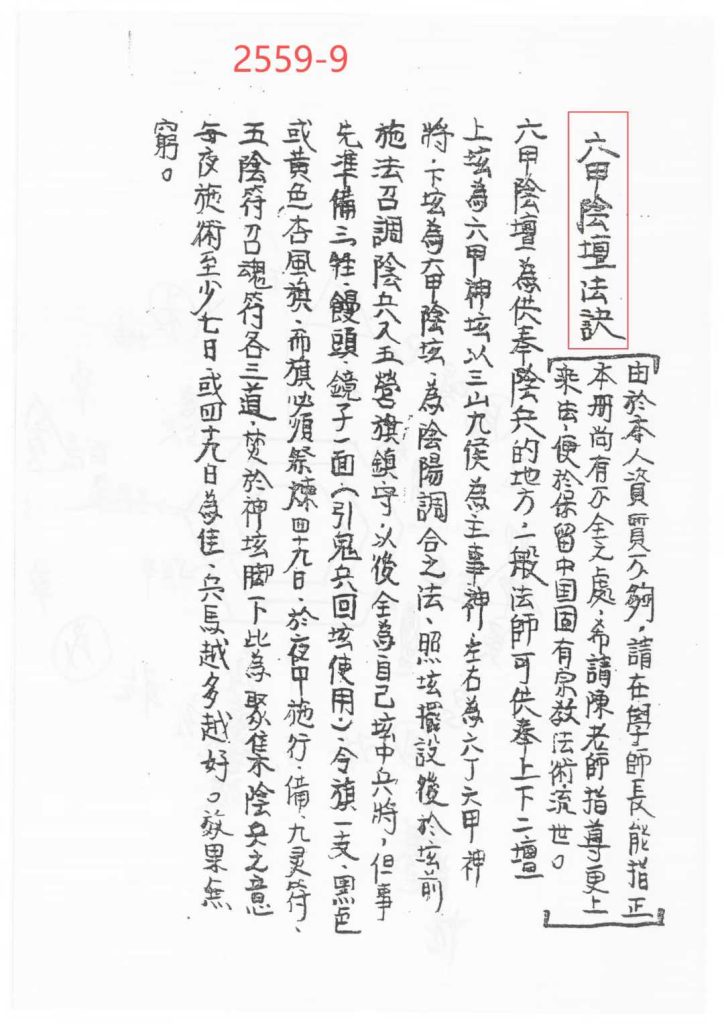 2559-9
六甲陰壇法訣
由於本人資質不夠，請在學師長能指正
本冊尚有不全之處，希請陳老師指導更上
乘法，便於保留中国固有宗教法術流世。
六甲陰壇為供奉陰兵的地方，一般法師可供奉上下二壇
上垓為六甲神垓以三山九侯為主事神，左右為六丁六甲神
將，下垓為六甲陰垓，為陰陽調合之法，照垓擺設後於垓前
施法召調陰兵入五營旗鎮守，以後全為自己垓中兵將，但事
先準備三牲，饅頭鏡子一面（引鬼兵回垓使用），令旗一支，黑色
或黃色杏風旗，而旗必須祭煉四十九日，於夜中施行，備九灵符、
五陰符召魂符各三道，焚於神垓脚下比為聚集陰兵之意
每夜施術至少七日，或四十九日為佳，兵馬越多越好。效果無
窮。